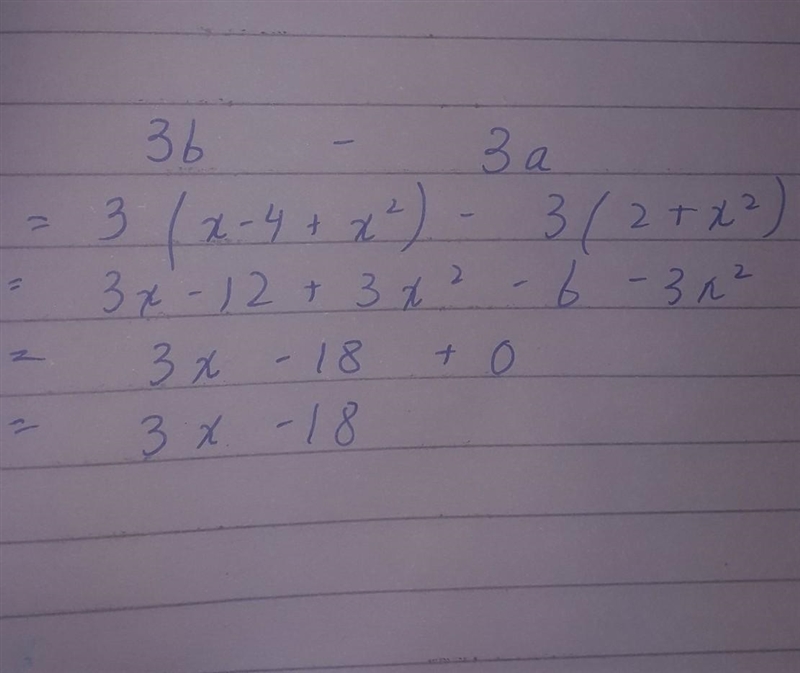 3b - 3a
= 3 (x - 4 + x²) - 3 (2 + x²)
= 3x - 12 + 3x² - 6 - 3x²
= 3x - 18 + 0
= 3x - 18